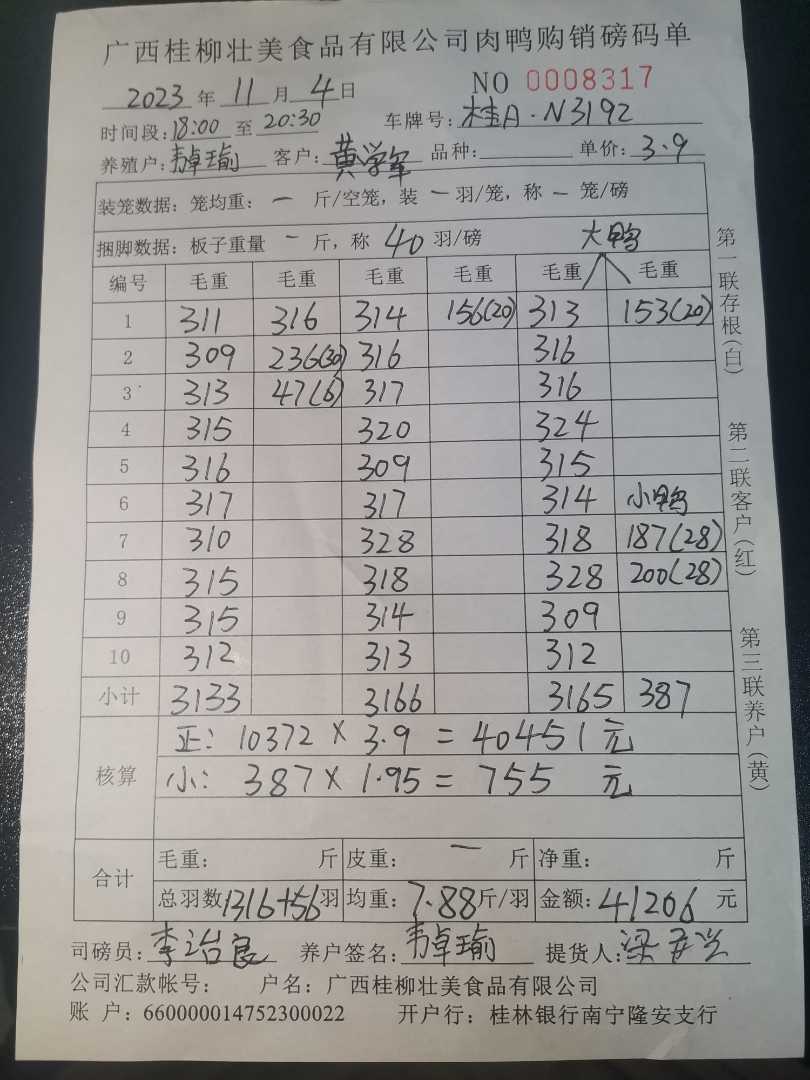 广西桂柳壮美食品有限公司肉鸭购销磅码单
2023 年 11 月 4 日 NO 0008317
时间段: 18:00 至 20:30 车牌号: 桂A·N3192
养殖户: 韦卓瑜 客户: 黄学军 品种: 单价: 3.9
装笼数据: 笼均重: 一 斤/空笼, 装 一 羽/笼, 称 一 笼/磅
捆脚数据: 板子重量 一 斤, 称 40 羽/磅 大鸭
编号 毛重 毛重 毛重 毛重 毛重 毛重
1 311 316 314 156(20) 313 153(20)
2 309 236(30) 316 316
3 313 47(6) 317 316
4 315 320 324
5 316 309 315
6 317 317 314 小鸭
7 310 328 318 187(28)
8 315 318 328 200(28)
9 315 314 309
10 312 313 312
小计 3133 3166 3165 387
核算 正: 10372 × 3.9 = 40451 元
小: 387 × 1.95 = 755 元
合计 毛重: 斤 皮重: 一 斤 净重: 斤
总羽数 1316+56 羽 均重: 7.88 斤/羽 金额: 41206 元
司磅员: 李治良 养户签名: 韦卓瑜 提货人: 梁
公司汇款帐号: 户名: 广西桂柳壮美食品有限公司
账 户: 660000014752300022 开户行: 桂林银行南宁隆安支行
第一联存根(白)
第二联客户(红)
第三联养户(黄)